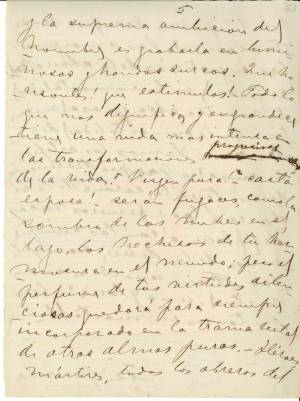 5
y la suprema ambición del
hombre es grabarla en lumi-
nosas y hondas surcos. Que ho-
risontes! que estimulos! Todo lo
que nos dignifica y engrandece
tiene una vida mas intensa en
las transformaciones progresivas
de la vida. "Virgen pura!" casta
esposa! serán fugaces, como la
sombra de las nubes en el
lago, los hechizos de tu her-
mosura en el mundo; pero el
perfume de tus virtudes silen-
ciosas quedará para siempre
incorporado en la trama vital
de otras almas puras.—Heroes,
mártires, todos los obreros del